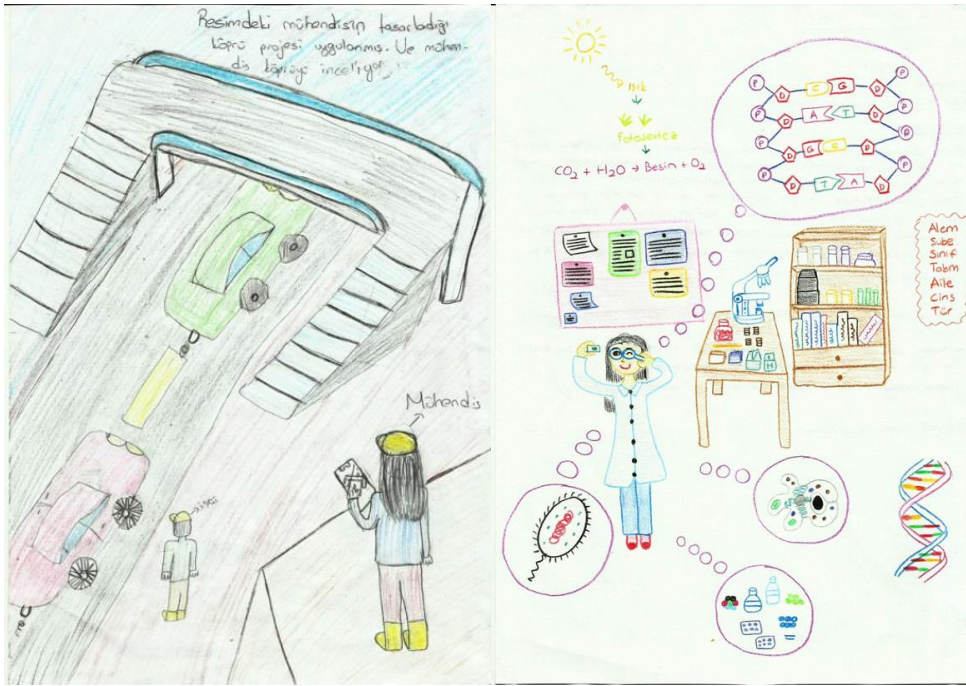 Resimdeki mühendisin tasarladığı
köprü projesi uygulanmış. Ve mühen-
dis köprüyü inceliyor.
Mühendis
işçi
Işık
Fotosentez
CO2 + H2O → Besin + O2
P D C G D P
P D A T D P
P D G C D P
P D T A D P
Alem
Şube
Sınıf
Takım
Aile
Cins
Tür